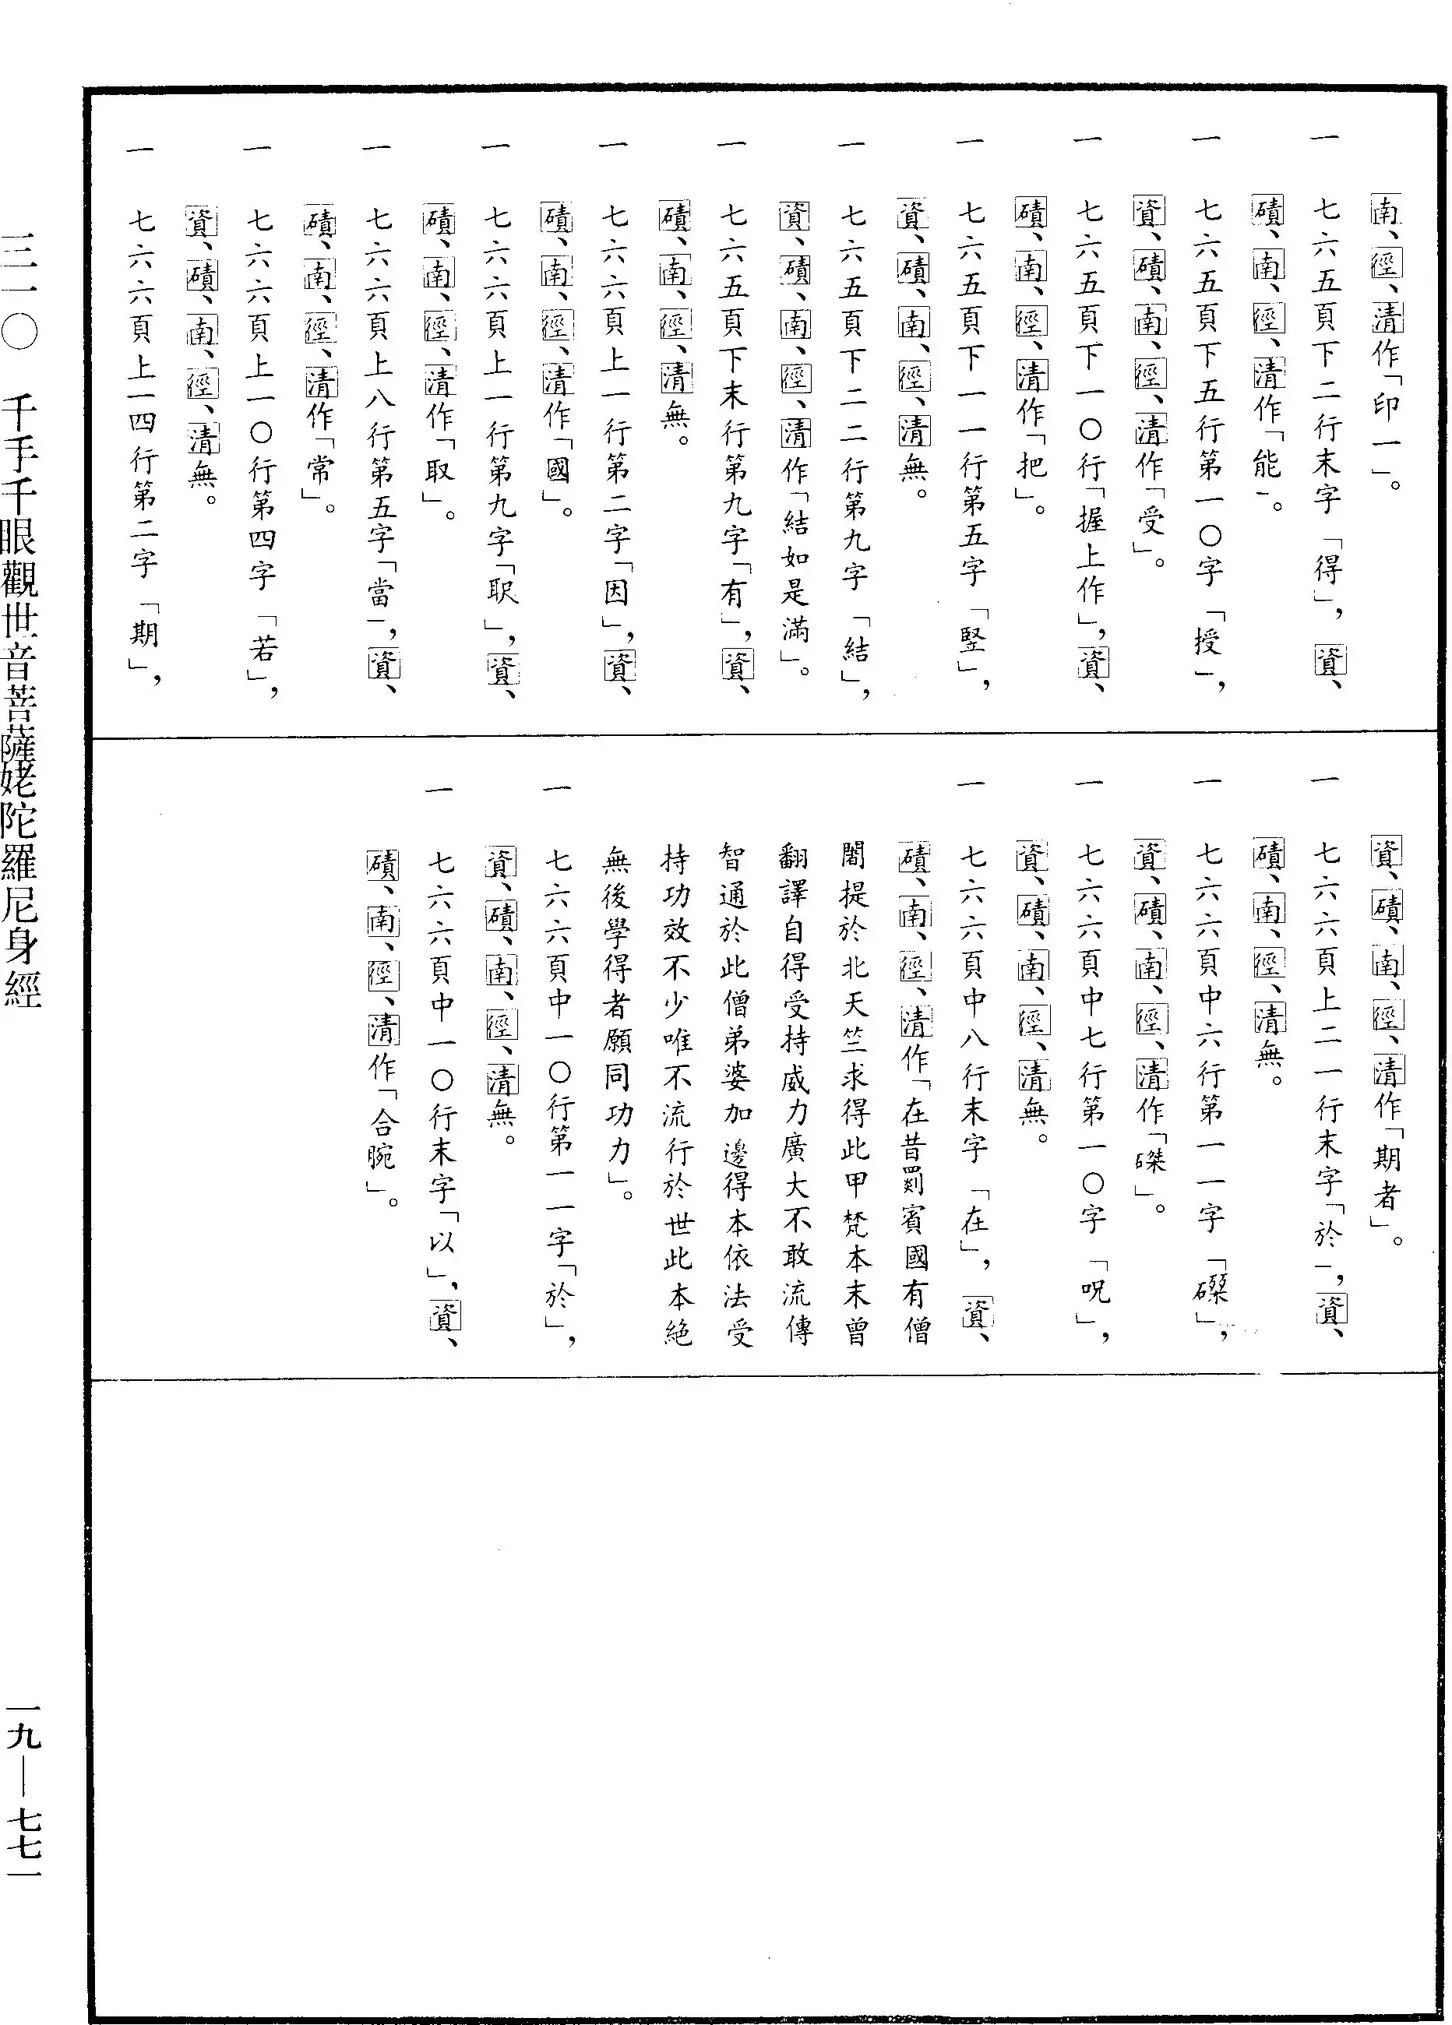 南、徑、清作「印一」。
一　七六五頁下二行末字「得」，資、
磧、南、徑、清作「能」。
一　七六五頁下五行第一〇字「授」，
資、磧、南、徑、清作「受」。
一　七六五頁下一〇行「握上作」，資、
磧、南、徑、清作「把」。
一　七六五頁下一一行第五字「竪」，
資、磧、南、徑、清無。
一　七六五頁下二二行第九字「結」，
資、磧、南、徑、清作「結如是滿」。
一　七六五頁下末行第九字「有」，資、
磧、南、徑、清無。
一　七六六頁上一行第二字「因」，資、
磧、南、徑、清作「國」。
一　七六六頁上一行第九字「䎡」，資、
磧、南、徑、清作「取」。
一　七六六頁上八行第五字「當」，資、
磧、南、徑、清作「常」。
一　七六六頁上一〇行第四字「若」，
資、磧、南、徑、清無。
一　七六六頁上一四行第二字「期」，
資、磧、南、徑、清作「期者」。
一　七六六頁上二一行末字「於」，資、
磧、南、徑、清無。
一　七六六頁中六行第一一字「磔」，
資、磧、南、徑、清作「磔」。
一　七六六頁中七行第一〇字「呪」，
資、磧、南、徑、清無。
一　七六六頁中八行末字「在」，資、
磧、南、徑、清作「在昔罽賓國有僧
闍提於北天竺求得此甲梵本末曾
翻譯自得受持威力廣大不敢流傳
智通於此僧弟婆加邊得本依法受
持功效不少唯不流行於世此本絕
無後學得者願同功力」。
一　七六六頁中一〇行第一一字「於」，
資、磧、南、徑、清無。
一　七六六頁中一〇行末字「以」，資、
磧、南、徑、清作「合腕」。
三一〇　千手千眼觀世音菩薩姥陀羅尼身經
一九—七七一